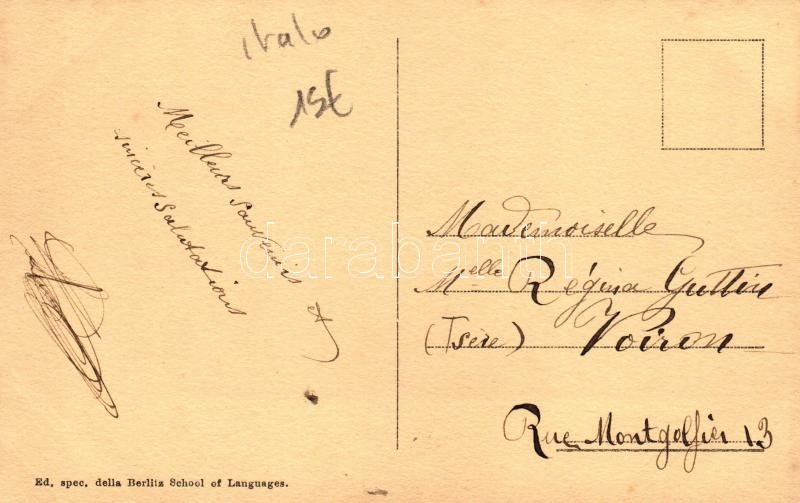 italo
15€
Meilleurs souvenirs et
sincères salutations
Mademoiselle
Melle Régina Guttin
(Isère) Voiron
Rue Montgolfier 13
Ed. spec. della Berlitz School of Languages.
darabanth